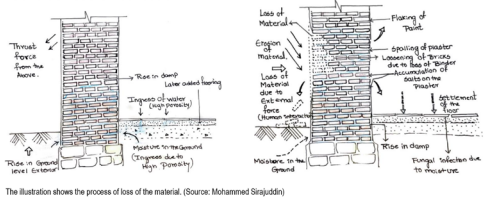 Thrust
force
from the
Above.
Rise in damp
Later added flooring
Ingress of water
(High porosity)
Moisture in the Ground
(Ingress due to
High Porosity)
Rise in Ground
level Exterior
Loss of
Material
Erosion
of
Material.
Loss of
Material
due to
External
force
(Human Interaction)
Moisture in the
Ground
Flaking of
Paint
Spalling of plaster
Loosening of Bricks
due to loss of Binder
Accumulation of
salts on the
Plaster
Settlement
of the
floor
Rise in damp
Fungal infection due
to moisture
The illustration shows the process of loss of the material. (Source: Mohammed Sirajuddin)